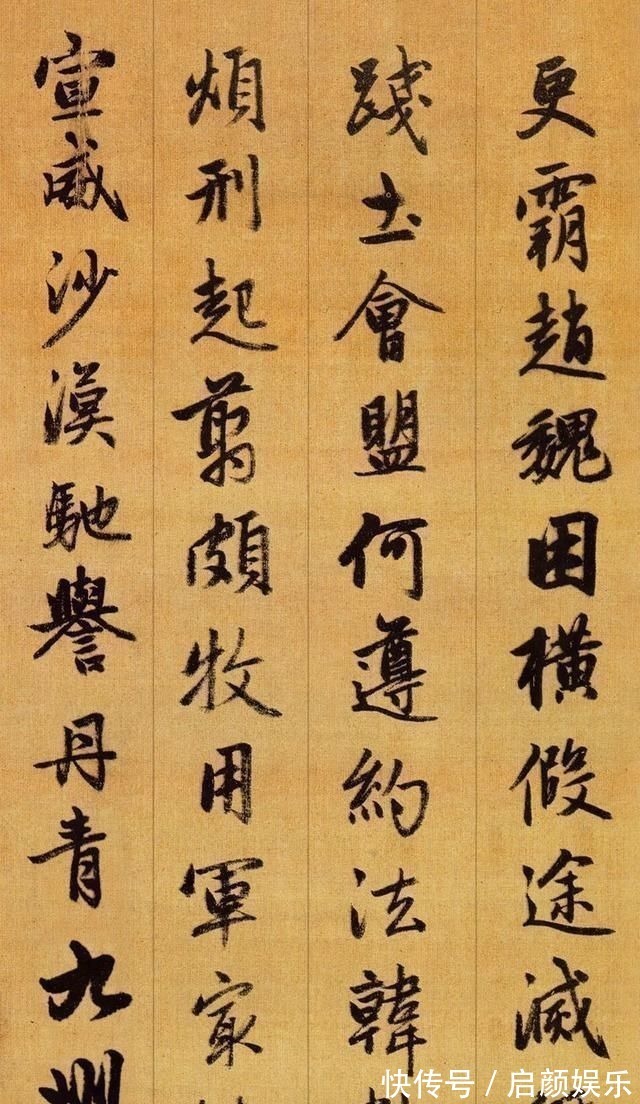 更霸趙魏困橫假途滅
踐土會盟何遵約法韓
煩刑起翦頗牧用軍冣
宣威沙漠馳譽丹青九州
快传号/启颜娱乐